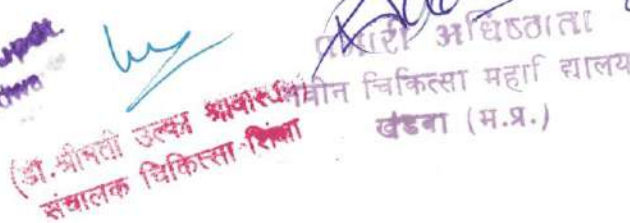 प्रभारी अधिष्ठाता
नवीन चिकित्सा महाविद्यालय
खंडवा (म.प्र.)
(डॉ.श्रीमती उल्का श्रीवास्तव)
संचालक चिकित्सा शिक्षा